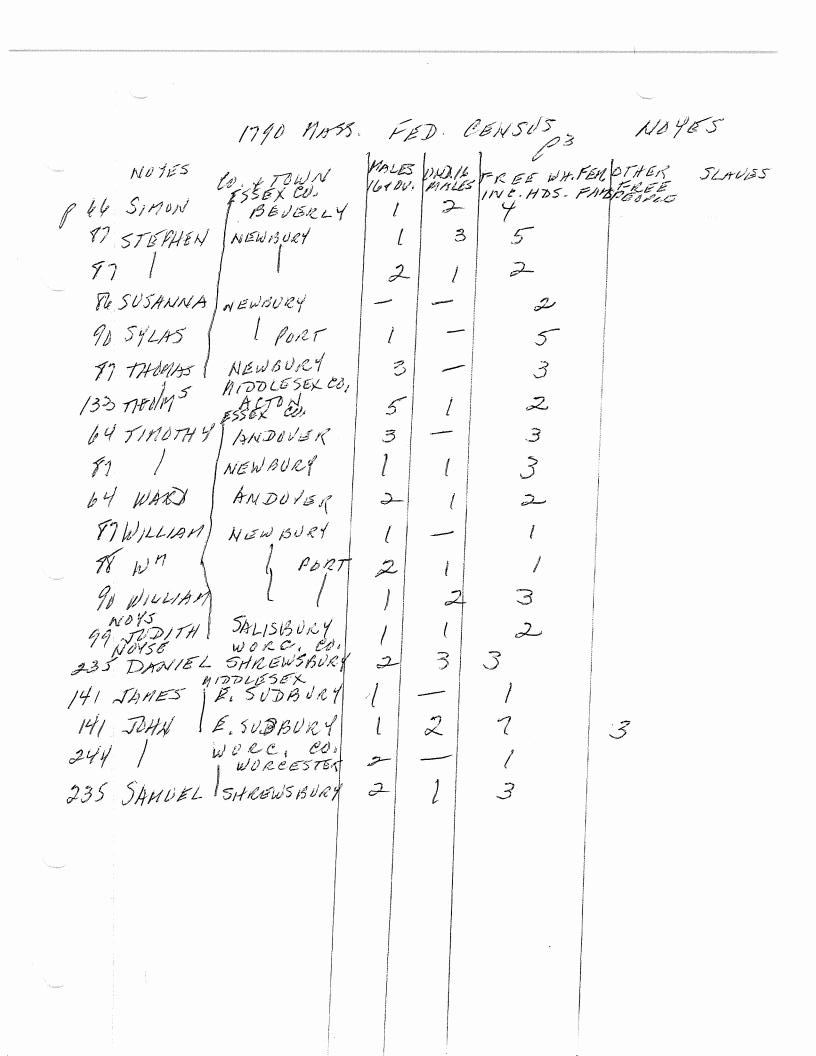 1790 MASS. FED. CENSUS NOYES
P3
NOYES CO. & TOWN MALES 16 & OV. UND. 16 MALES FREE WH. FEM. INC. HDS. FAM. OTHER FREE PEOPLE SLAVES
ESSEX CO.
P 66 SIMON BEVERLY 1 2 4
87 STEPHEN NEWBURY 1 3 5
87 | | 2 1 2
86 SUSANNA NEWBURY — — 2
90 SYLAS | PORT 1 — 5
87 THOMAS NEWBURY 3 — 3
MIDDLESEX CO.
133 THOMS ACTON 5 1 2
ESSEX CO.
64 TIMOTHY ANDOVER 3 — 3
87 | NEWBURY 1 1 3
64 WARD ANDOVER 2 1 2
87 WILLIAM NEWBURY 1 — 1
88 WM | PORT 2 1 1
90 WILLIAM | | 1 2 3
NOYS
99 JUDITH SALISBURY 1 1 2
NOYSE WORC. CO.
235 DANIEL SHREWSBURY 2 3 3
MIDDLESEX
141 JAMES E. SUDBURY 1 — 1
141 JOHN E. SUDBURY 1 2 7 3
WORC. CO.
244 | WORCESTER 2 — 1
235 SAMUEL SHREWSBURY 2 1 3